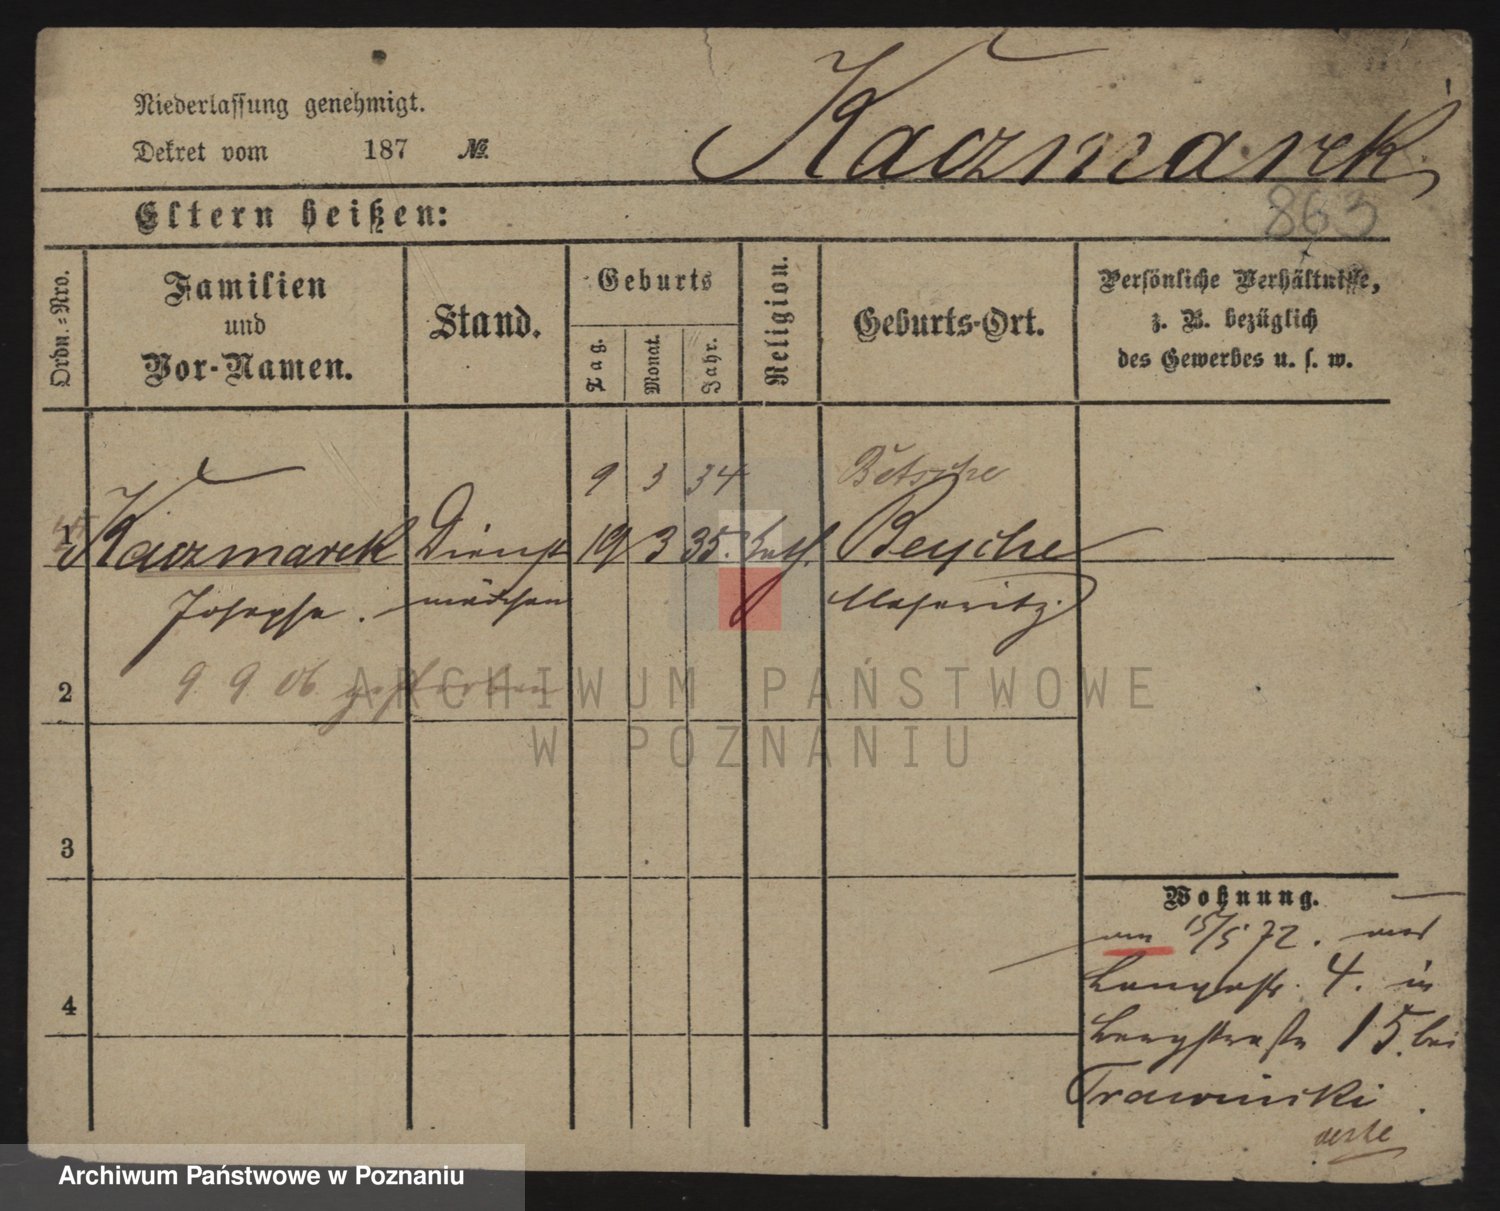 Kaczmarek
Niederlassung genehmigt.
Dekret vom 187 №.
863
Eltern heißen:
Ordn.-Nro.
Familien
und
Vor-Namen.
Stand.
Geburts
Tag.
Monat.
Jahr.
Religion.
Geburts-Ort.
Persönliche Verhältnisse,
z. B. bezüglich
des Gewerbes u. s. w.
9 3 34 Betsche
1 Kaczmarek Dienst 19 3 35. kath. Beyche
Josepha. mädchen Meseritz
9 9 06 gestorben
2
3
4
Wohnung.
am 15/5 72. von
Langestr. 4. in
Bergstraße 15. bei
Trawinski
ARCHIWUM PAŃSTWOWE
W POZNANIU
Archiwum Państwowe w Poznaniu